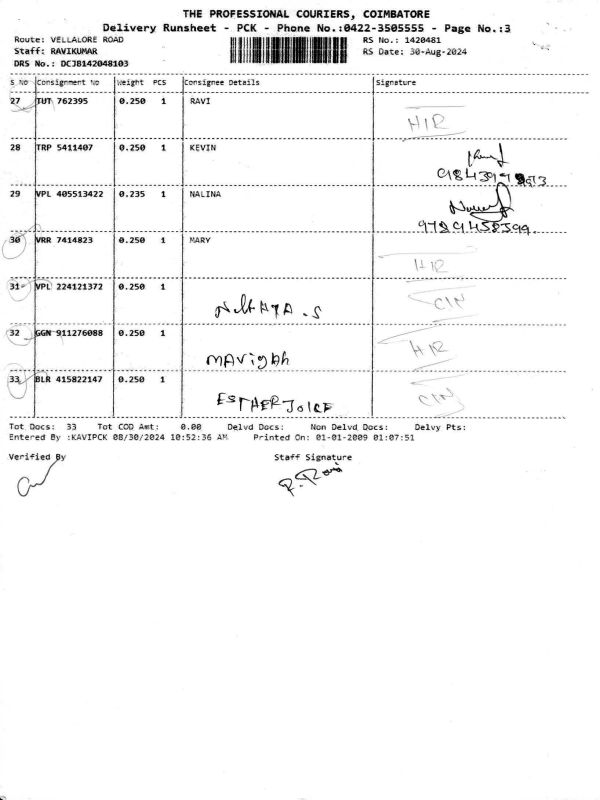 THE PROFESSIONAL COURIERS, COIMBATORE
Delivery Runsheet - PCK - Phone No.:0422-3505555 - Page No.:3
Route: VELLALORE ROAD RS No.: 1420481
Staff: RAVIKUMAR RS Date: 30-Aug-2024
DRS No.: DCJB142048103
S No Consignment No Weight PCS Consignee Details Signature
27 TUT 762395 0.250 1 RAVI
HIR
28 TRP 5411407 0.250 1 KEVIN
29 VPL 405513422 0.235 1 NALINA
9789458599
30 VRR 7414823 0.250 1 MARY
HIR
31 VPL 224121372 0.250 1
CIN
32 GGN 911276088 0.250 1
HIR
33 BLR 415822147 0.250 1
ESTHER JOICE CIN
Tot Docs: 33 Tot COD Amt: 0.00 Delvd Docs: Non Delvd Docs: Delvy Pts:
Entered By :KAVIPCK 08/30/2024 10:52:36 AM Printed On: 01-01-2009 01:07:51
Verified By Staff Signature